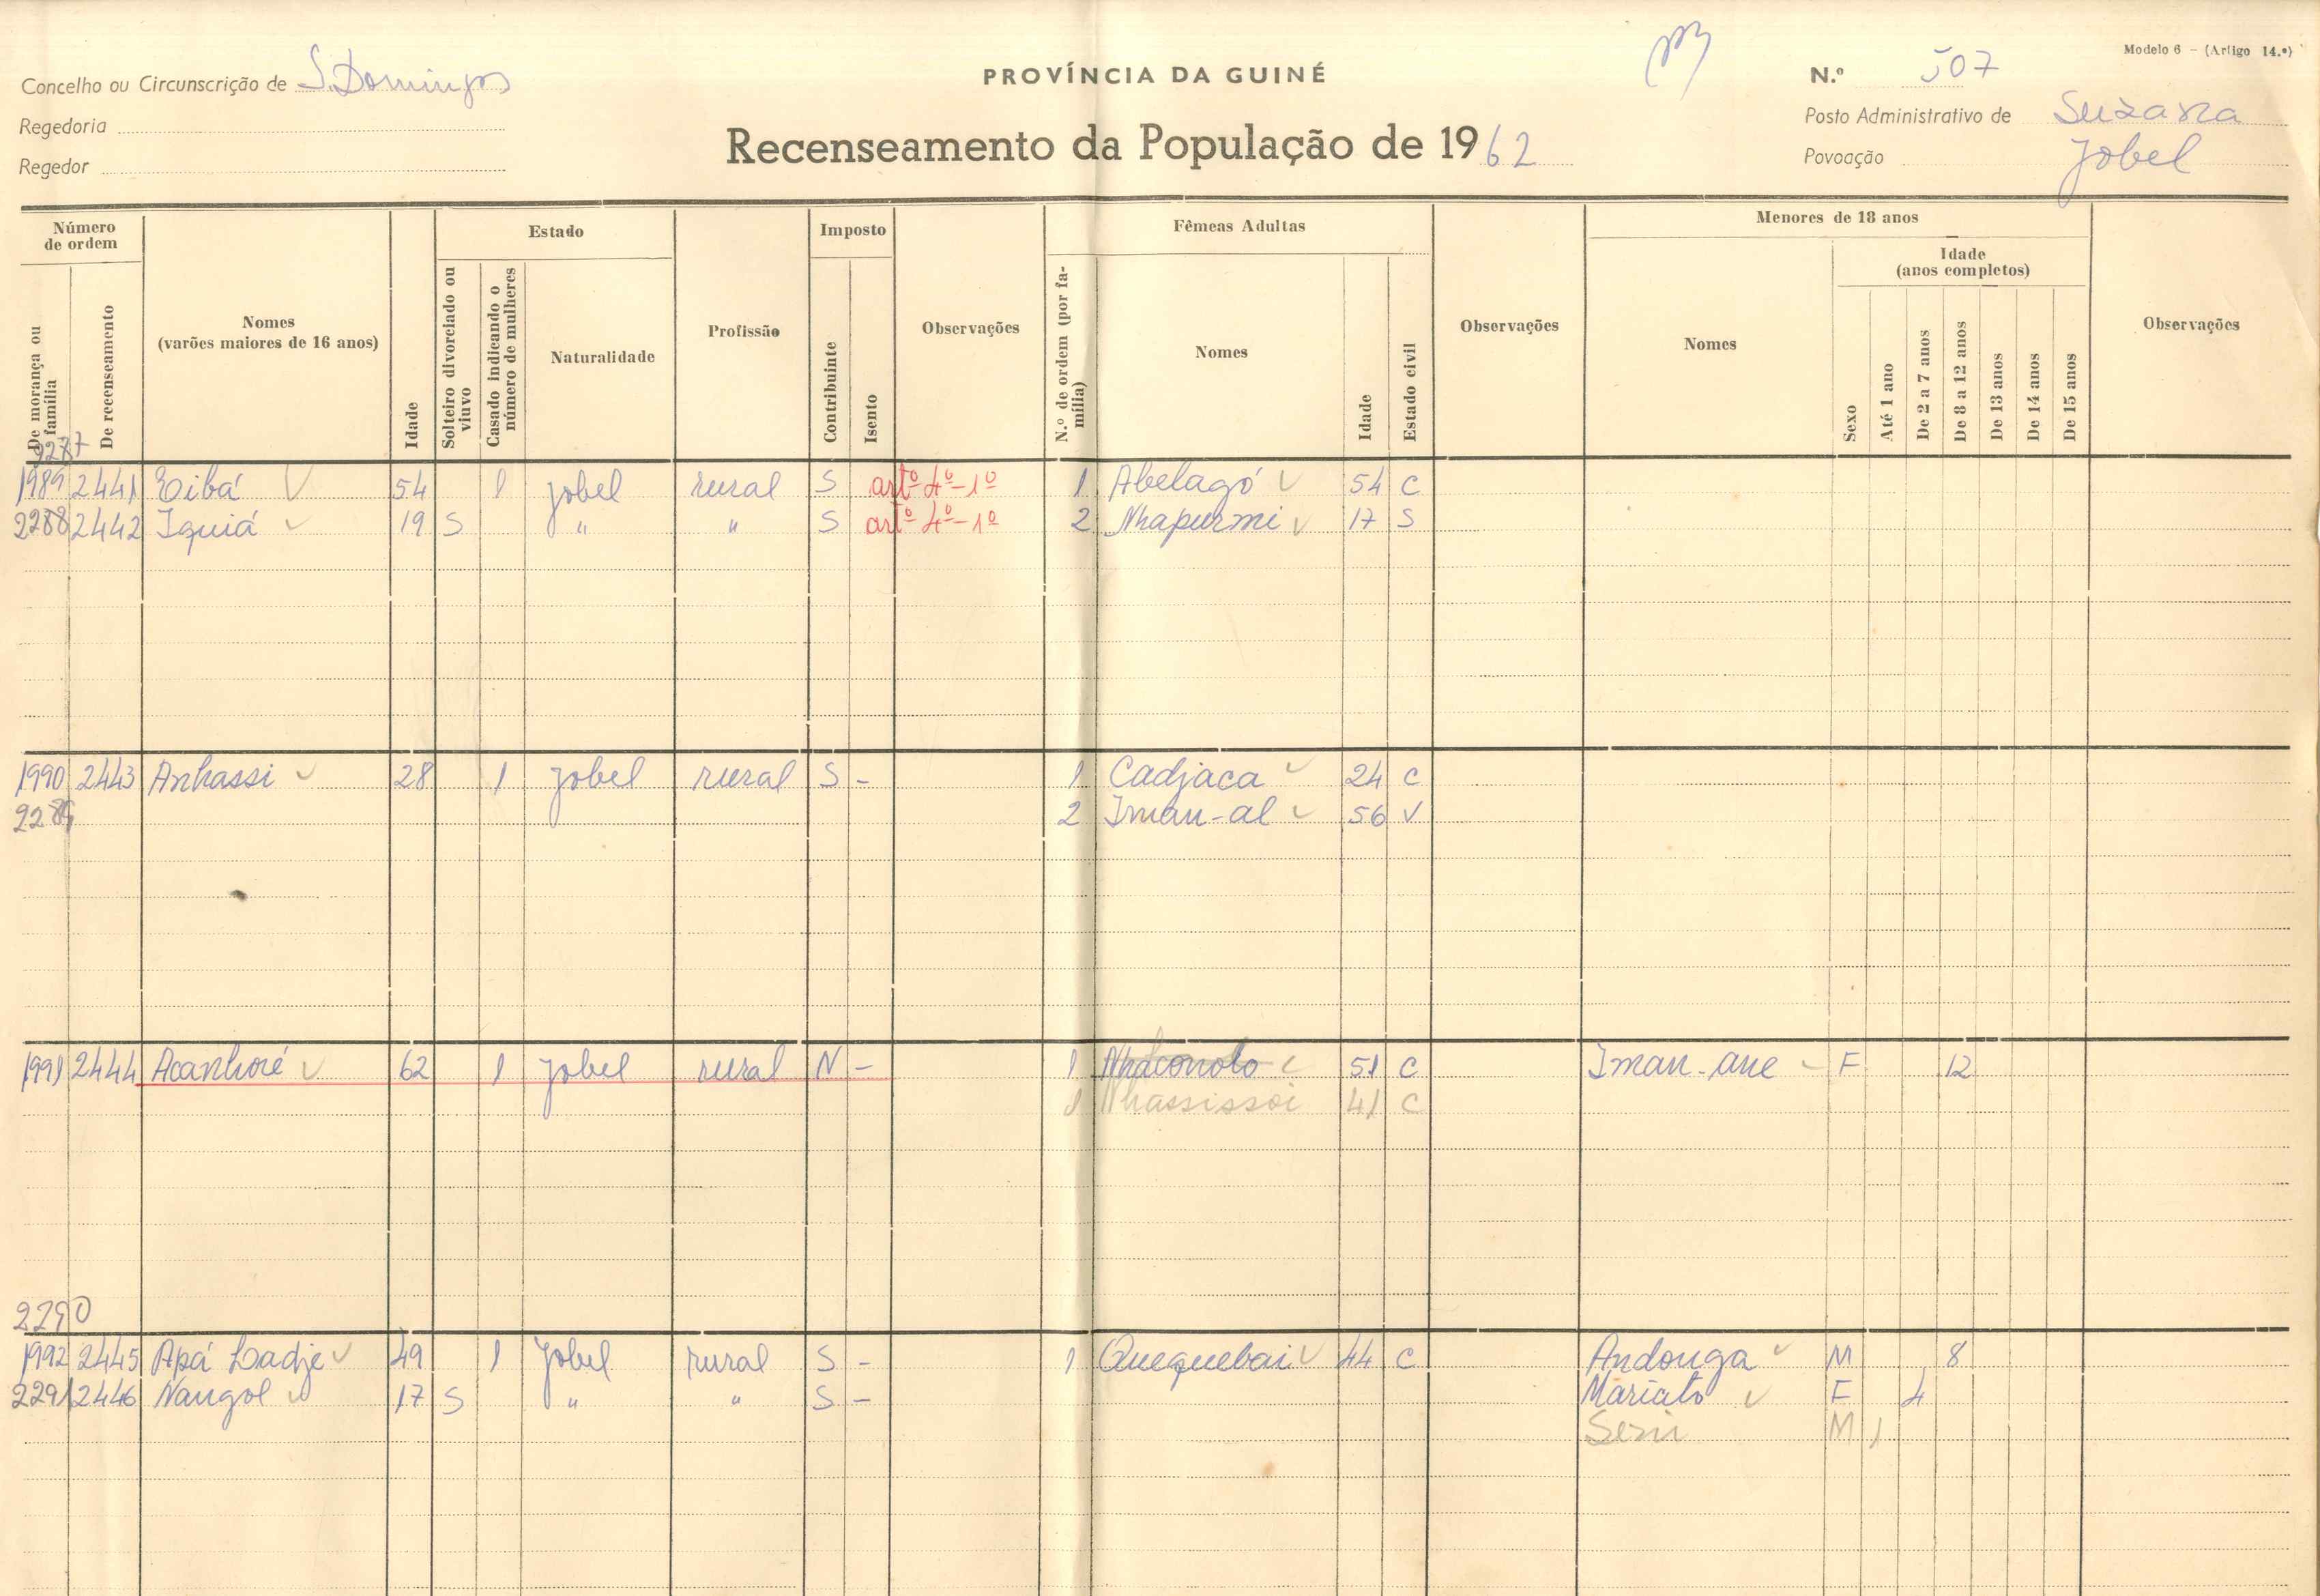 Modelo 6 - (Artigo 14.º)
Concelho ou Circunscrição de S. Domingos
PROVÍNCIA DA GUINÉ
N.º 507
Regedoria
Recenseamento da População de 1962
Posto Administrativo de Suzana
Regedor
Povoação Jobel
Número de ordem
Estado
Imposto
Fêmeas Adultas
Menores de 18 anos
Idade
(anos completos)
De morança ou família
De recenseamento
Nomes
(varões maiores de 16 anos)
Idade
Solteiro divorciado ou viuvo
Casado indicando o número de mulheres
Naturalidade
Profissão
Contribuinte
Isento
Observações
N.º de ordem (por família)
Nomes
Idade
Estado civil
Observações
Nomes
Sexo
Até 1 ano
De 2 a 7 anos
De 8 a 12 anos
De 13 anos
De 14 anos
De 15 anos
Observações
2287
1989 2441 Eibá 54 1 Jobel rural S artº 4º-1º 1 Abelagó 54 C
2288 2442 Iquiá 19 S " " S artº 4º-1º 2 Nhapurmi 17 S
1990 2443 Anhassi 28 1 Jobel rural S - 1 Cadjaca 24 C
2289 2 Iman-al 56 V
1991 2444 Acanhoré 62 1 Jobel rural N - 1 51 C Iman-ane F 12
1 Nhassissoi 41 C
2290
1992 2445 Apá Ladje 49 1 Jobel rural S - 1 Quequebai 44 C Andonga M 8
2291 2446 Nangol 17 S " " S - Mariato F 4
M 1